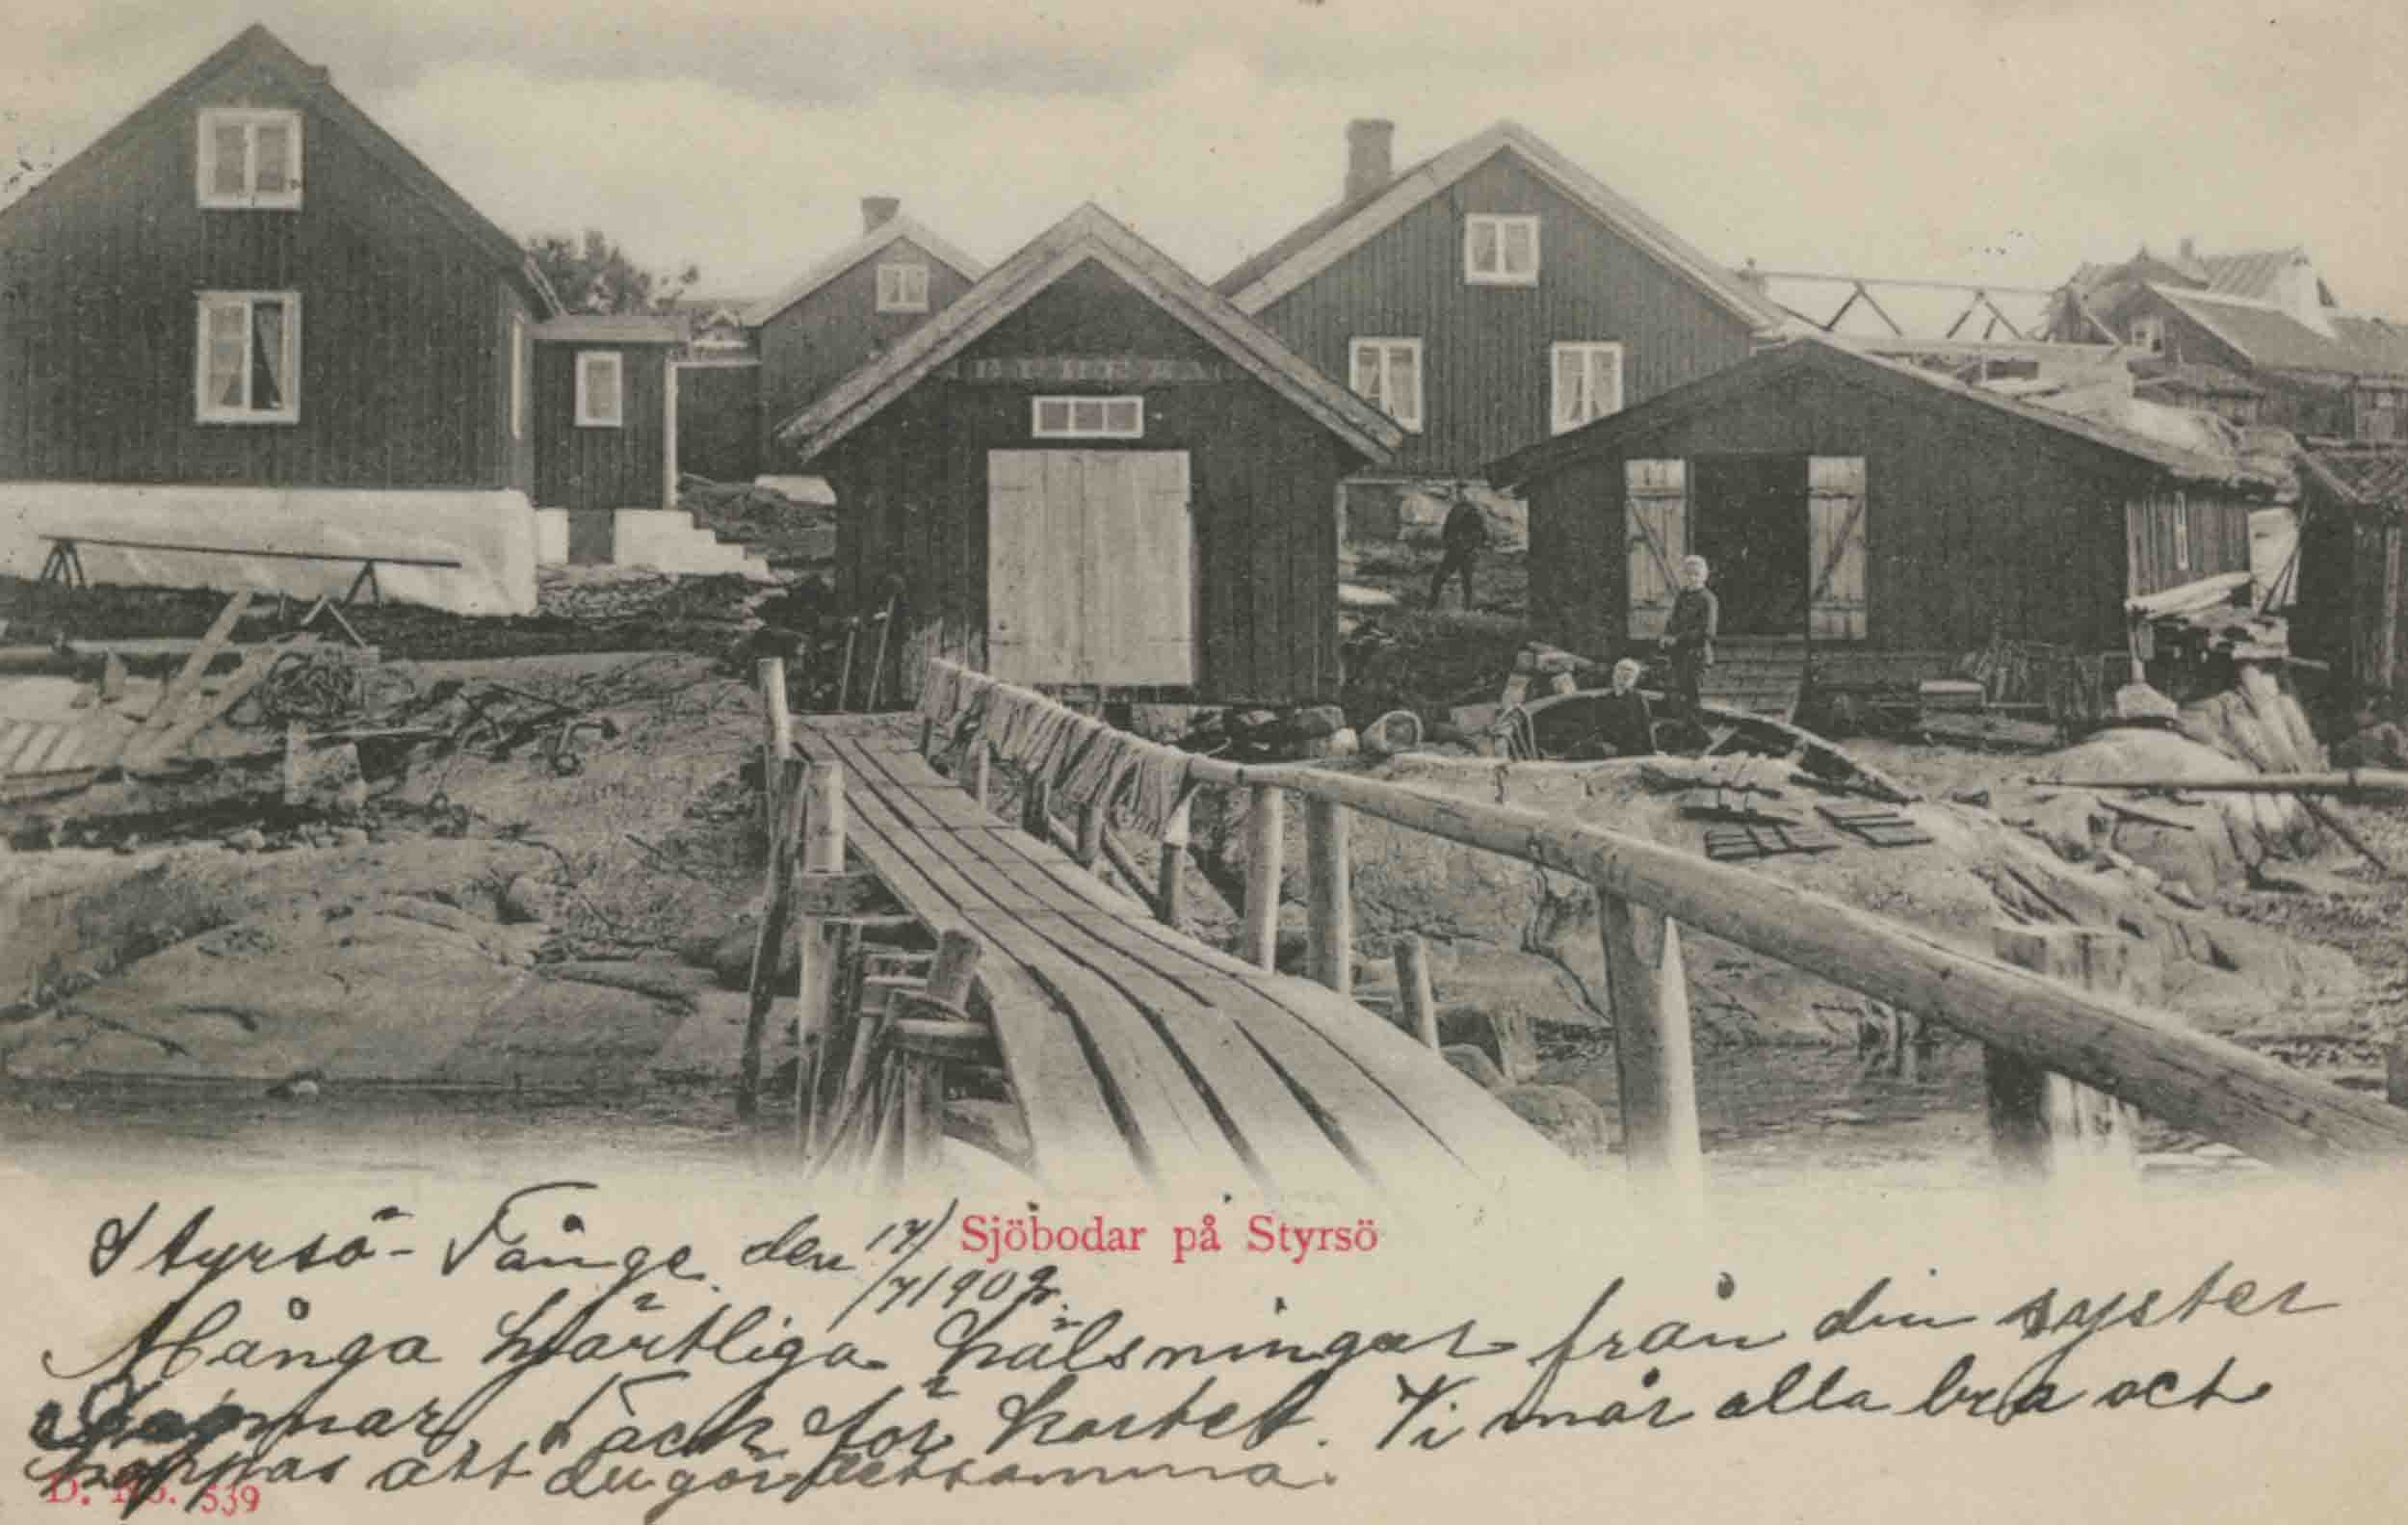 Sjöbodar på Styrsö
Styrsö-Tånge. den 17/
/7 1902.
Många hjärtliga hälsningar från din syster
Tack för kortet. Vi mår alla bra och
hoppas att du gör detsamma.
D. No. 539